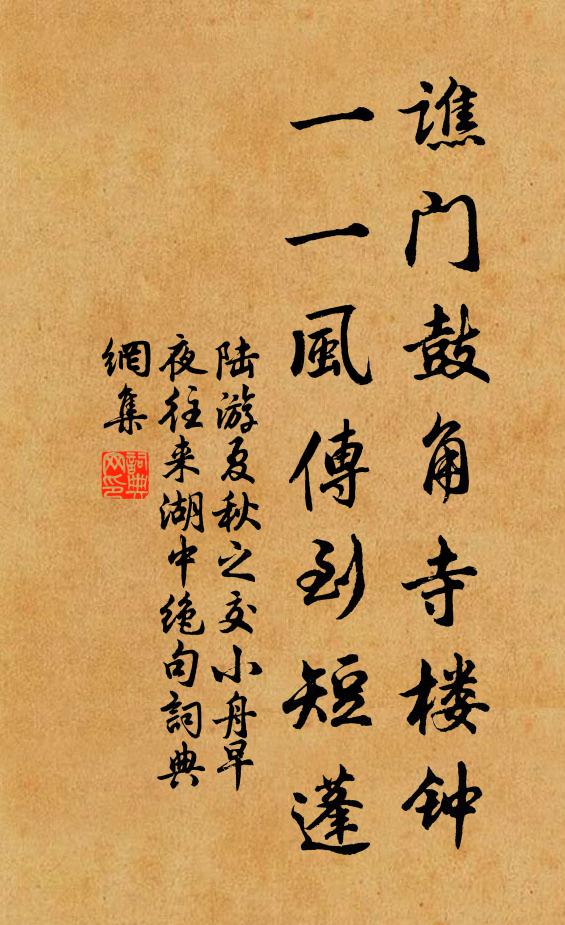 谯门鼓角寺楼钟
一一風傳到短蓬
陆游夏秋之交小舟早
夜往来湖中绝句詞典
網集
詞典
网印